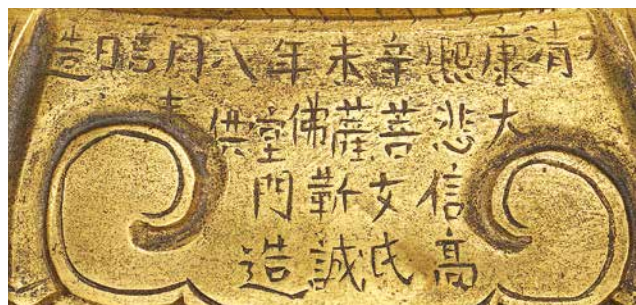 大清康熙辛未年八月吉日造
大悲菩薩佛堂供奉
信女靳門
高氏誠造